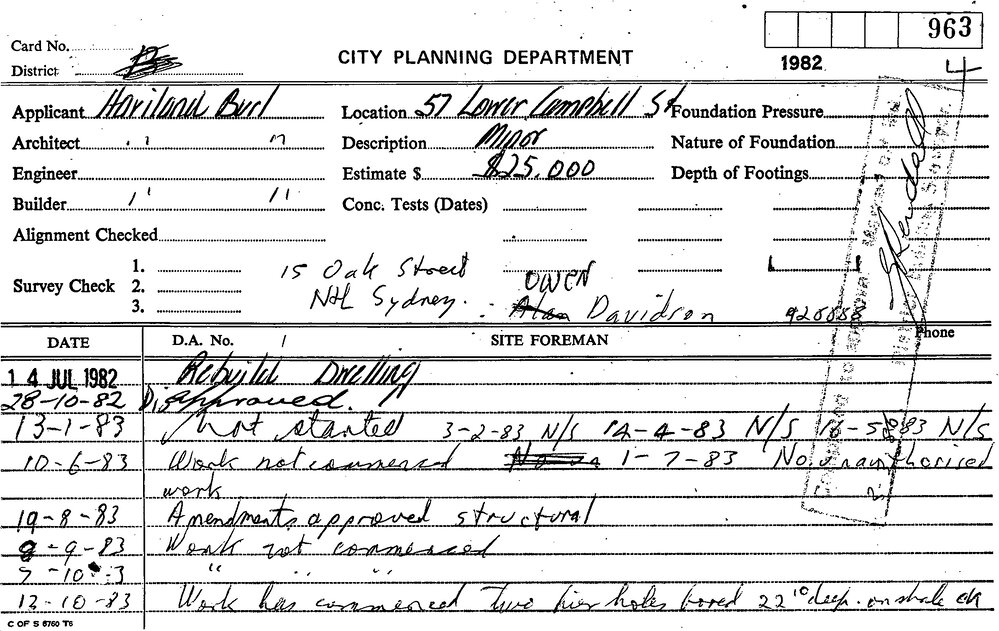 963
Card No.
CITY PLANNING DEPARTMENT
District
1982
4
Applicant Haviland Burl Location 57 Lower Campbell St Foundation Pressure
Architect " " Description Minor Nature of Foundation
Engineer Estimate $ $25,000 Depth of Footings
Builder " " Conc. Tests (Dates)
Alignment Checked
Survey Check 1.
2.
3.
15 Oak Street
Nth Sydney. : OWEN Davidson 920888
Phone
DATE D.A. No. / SITE FOREMAN
14 JUL 1982 Rebuild Dwelling
28-10-82 Disapproved.
13-1-83 Not started 3-2-83 N/S 14-4-83 N/S 16-5-83 N/S
10-6-83 Work not commenced 1-7-83 No unauthorised
work
19-8-83 Amendments approved structural
9-9-83 Work not commenced
7-10-83 " " "
12-10-83 Work has commenced two pier holes bored 22'0 deep. on shale ok
C OF S 6760 T6